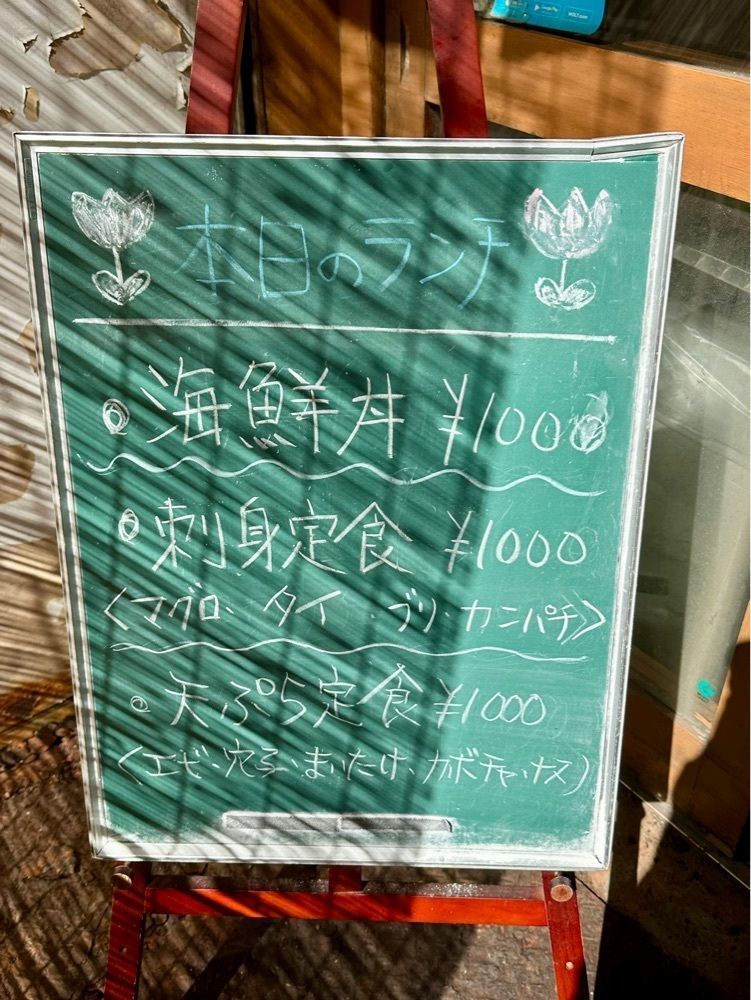 Google Play
WOLT.com
本日のランチ
海鮮丼 ¥1000
刺身定食 ¥1000
〈マグロ・タイ・ブリ・カンパチ〉
天ぷら定食 ¥1000
〈エビ・穴子・まいたけ・カボチャ・ナス〉